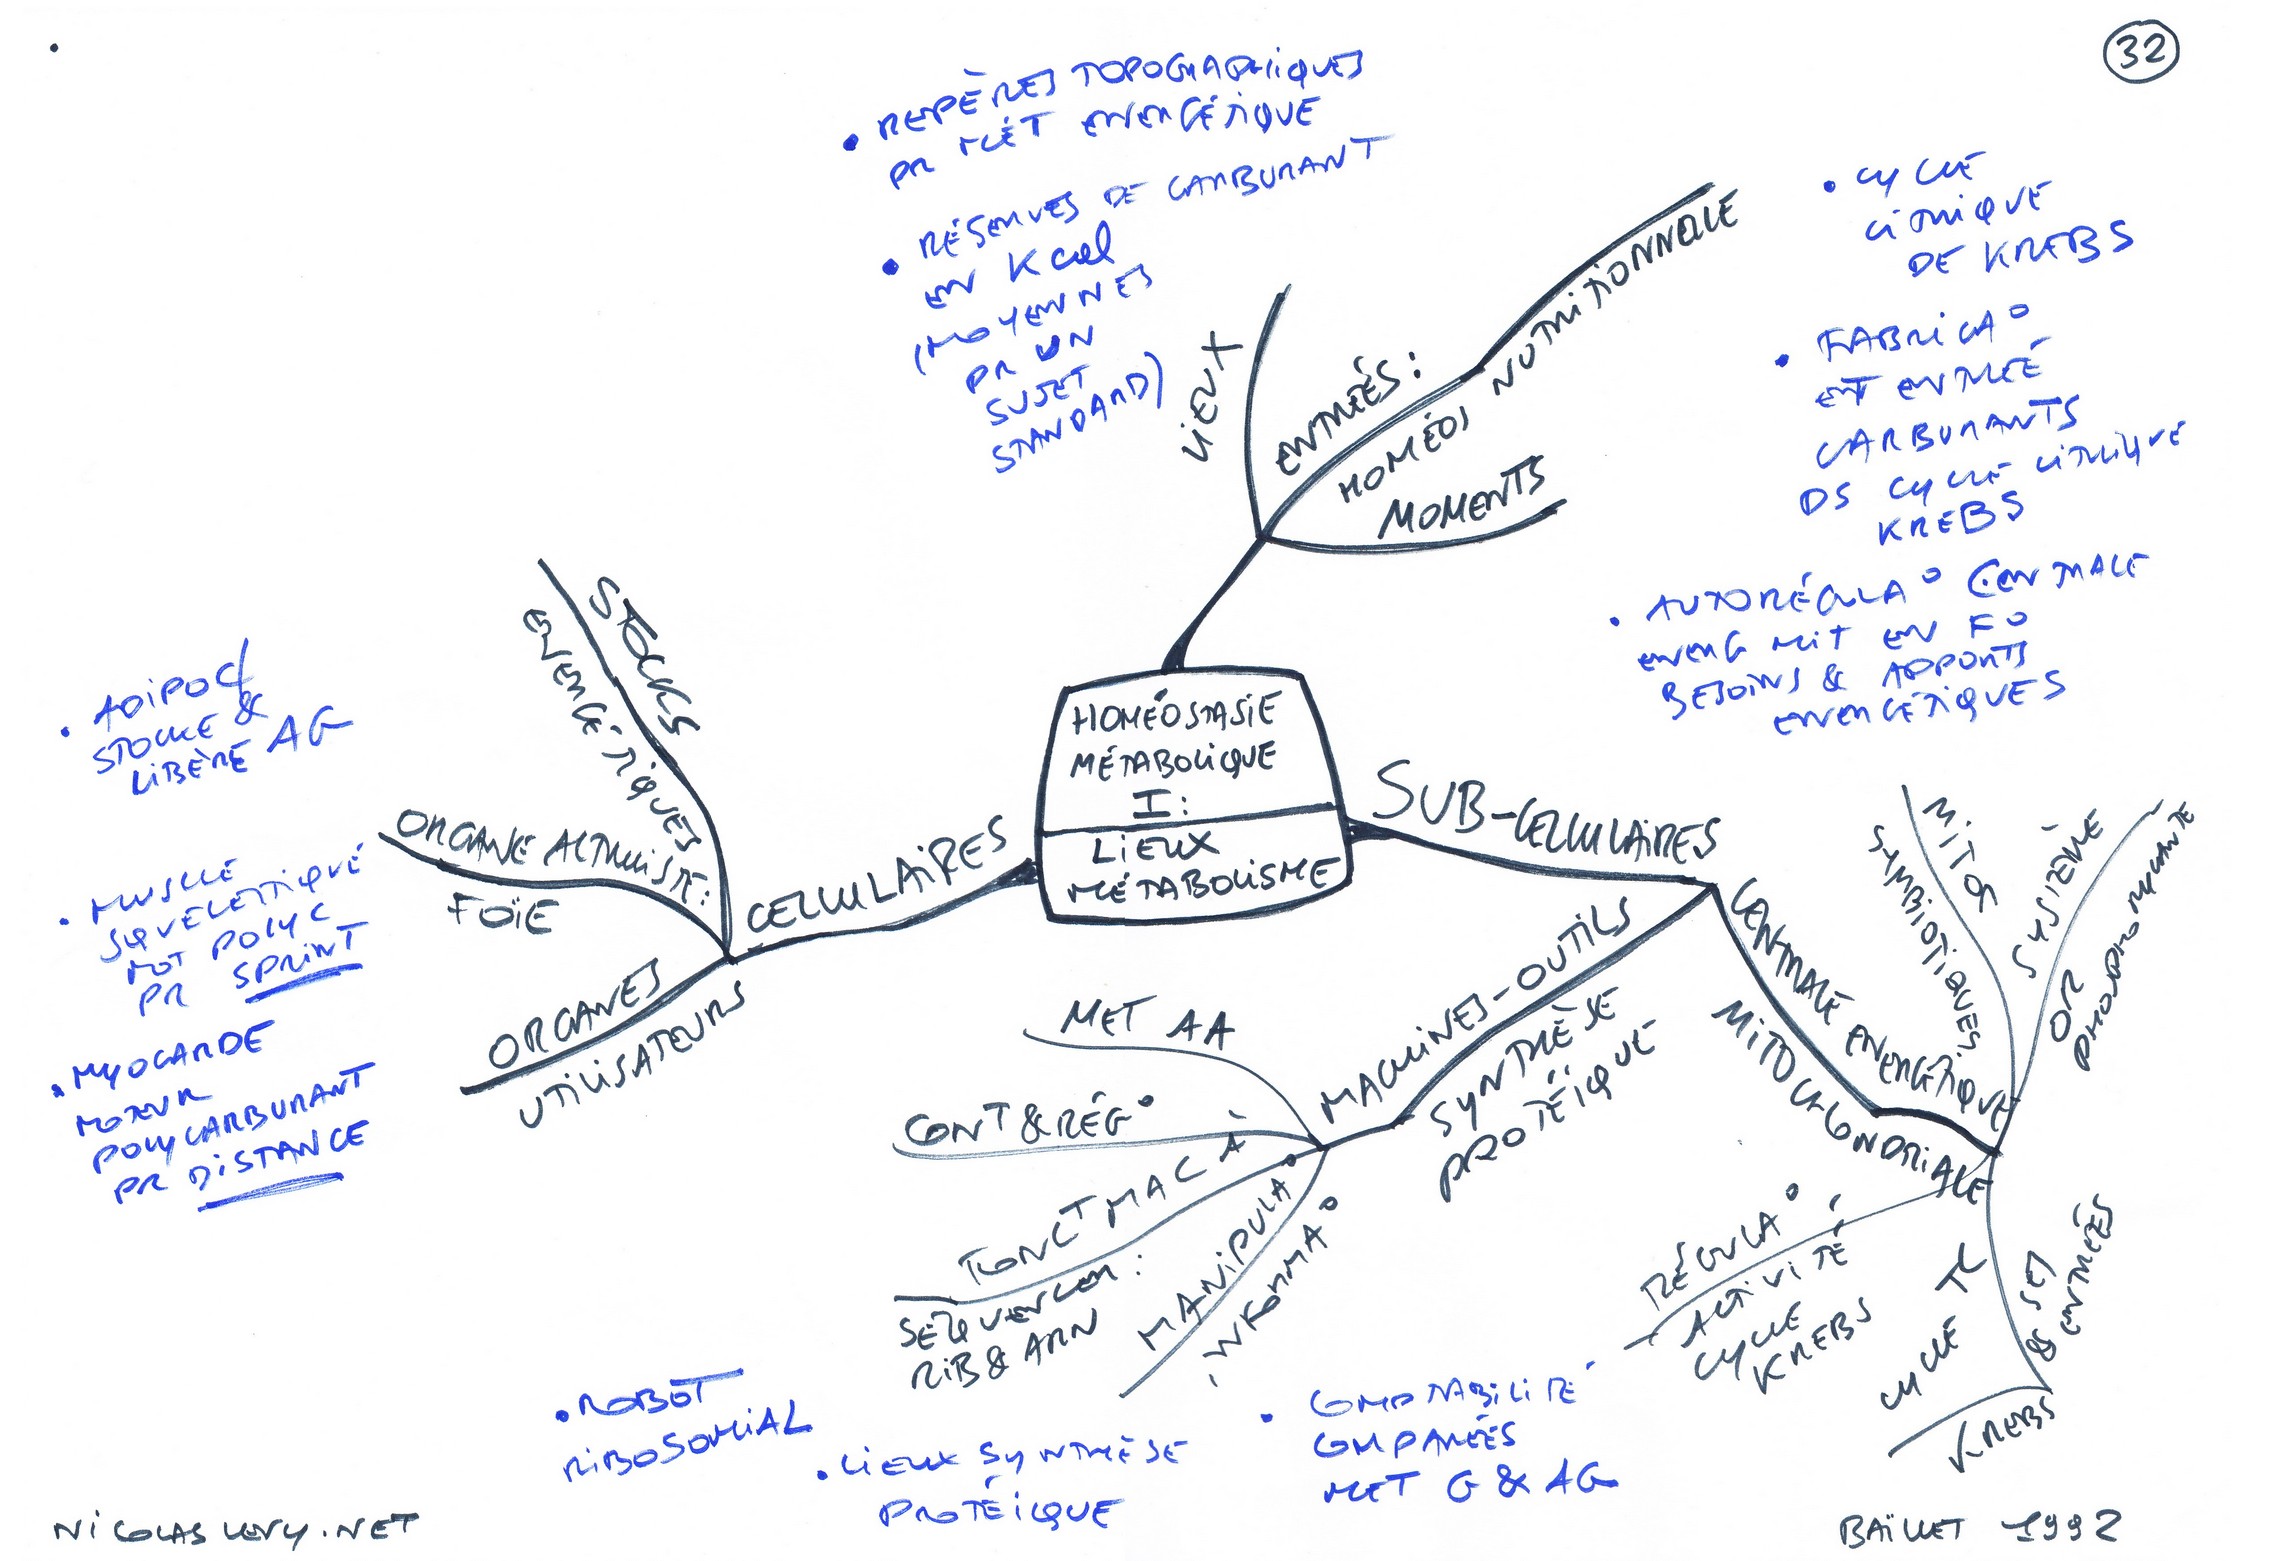 32
• REPÈRES TOPOGRAPHIQUES
PR MÉT ENERGÉTIQUE
• RÉSERVES DE CARBURANT
EN Kcal
(MOYENNES
PR UN
SUJET
STANDARD)
LIEUX
ENTRÉES:
HOMÉOS NUTRITIONNELLE
MOMENTS
• CYCLE
CITRIQUE
DE KREBS
• FABRICA°
ET ENTRÉE
CARBURANTS
DS CYCLE CITRIQUE
KREBS
• AUTORÉGULA° CENTRALE
ENERG MIT EN F°
BESOINS & APPORTS
ENERGÉTIQUES
HOMÉOSTASIE
MÉTABOLIQUE
I:
LIEUX
MÉTABOLISME
CELLULAIRES
STOCKS
ENERGÉTIQUES
ORGANE ALTRUISTE:
FOIE
ORGANES
UTILISATEURS
• ADIPOC/
STOCKE &
LIBÈRE AG
• MUSCLE
SQUELETTIQUE
MOT POLYC
PR SPRINT
• MYOCARDE
MOTEUR
POLYCARBURANT
PR DISTANCE
SUB-CELLULAIRES
CENTRALE ENERGÉTIQUE
MITOCHONDRIALE
MITOS
SYMBIOTIQUES
SYSTÈME
OR
PHOSPHORYLANTE
RÉGULA°
ACTIVITÉ
CYCLE
KREBS
CYCLE TC
& SES
ENTRÉES
KREBS
MACHINES-OUTILS
SYNTHÈSE
PROTÉIQUE
MET AA
CONT & RÉG°
FONCT MAC À
SÉQUENCER:
RIB & ARN
MANIPULA°
INFORMA°
• ROBOT
RIBOSOMIAL
• LIEUX SYNTHÈSE
PROTÉIQUE
• COMPTABILITÉ
COMPARÉES
MET G & AG
NICOLASLEVY.NET
BAILLET 1992